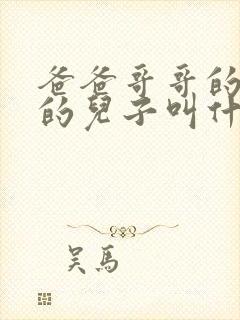 爸爸哥哥的
的兒子叫什
吴馬